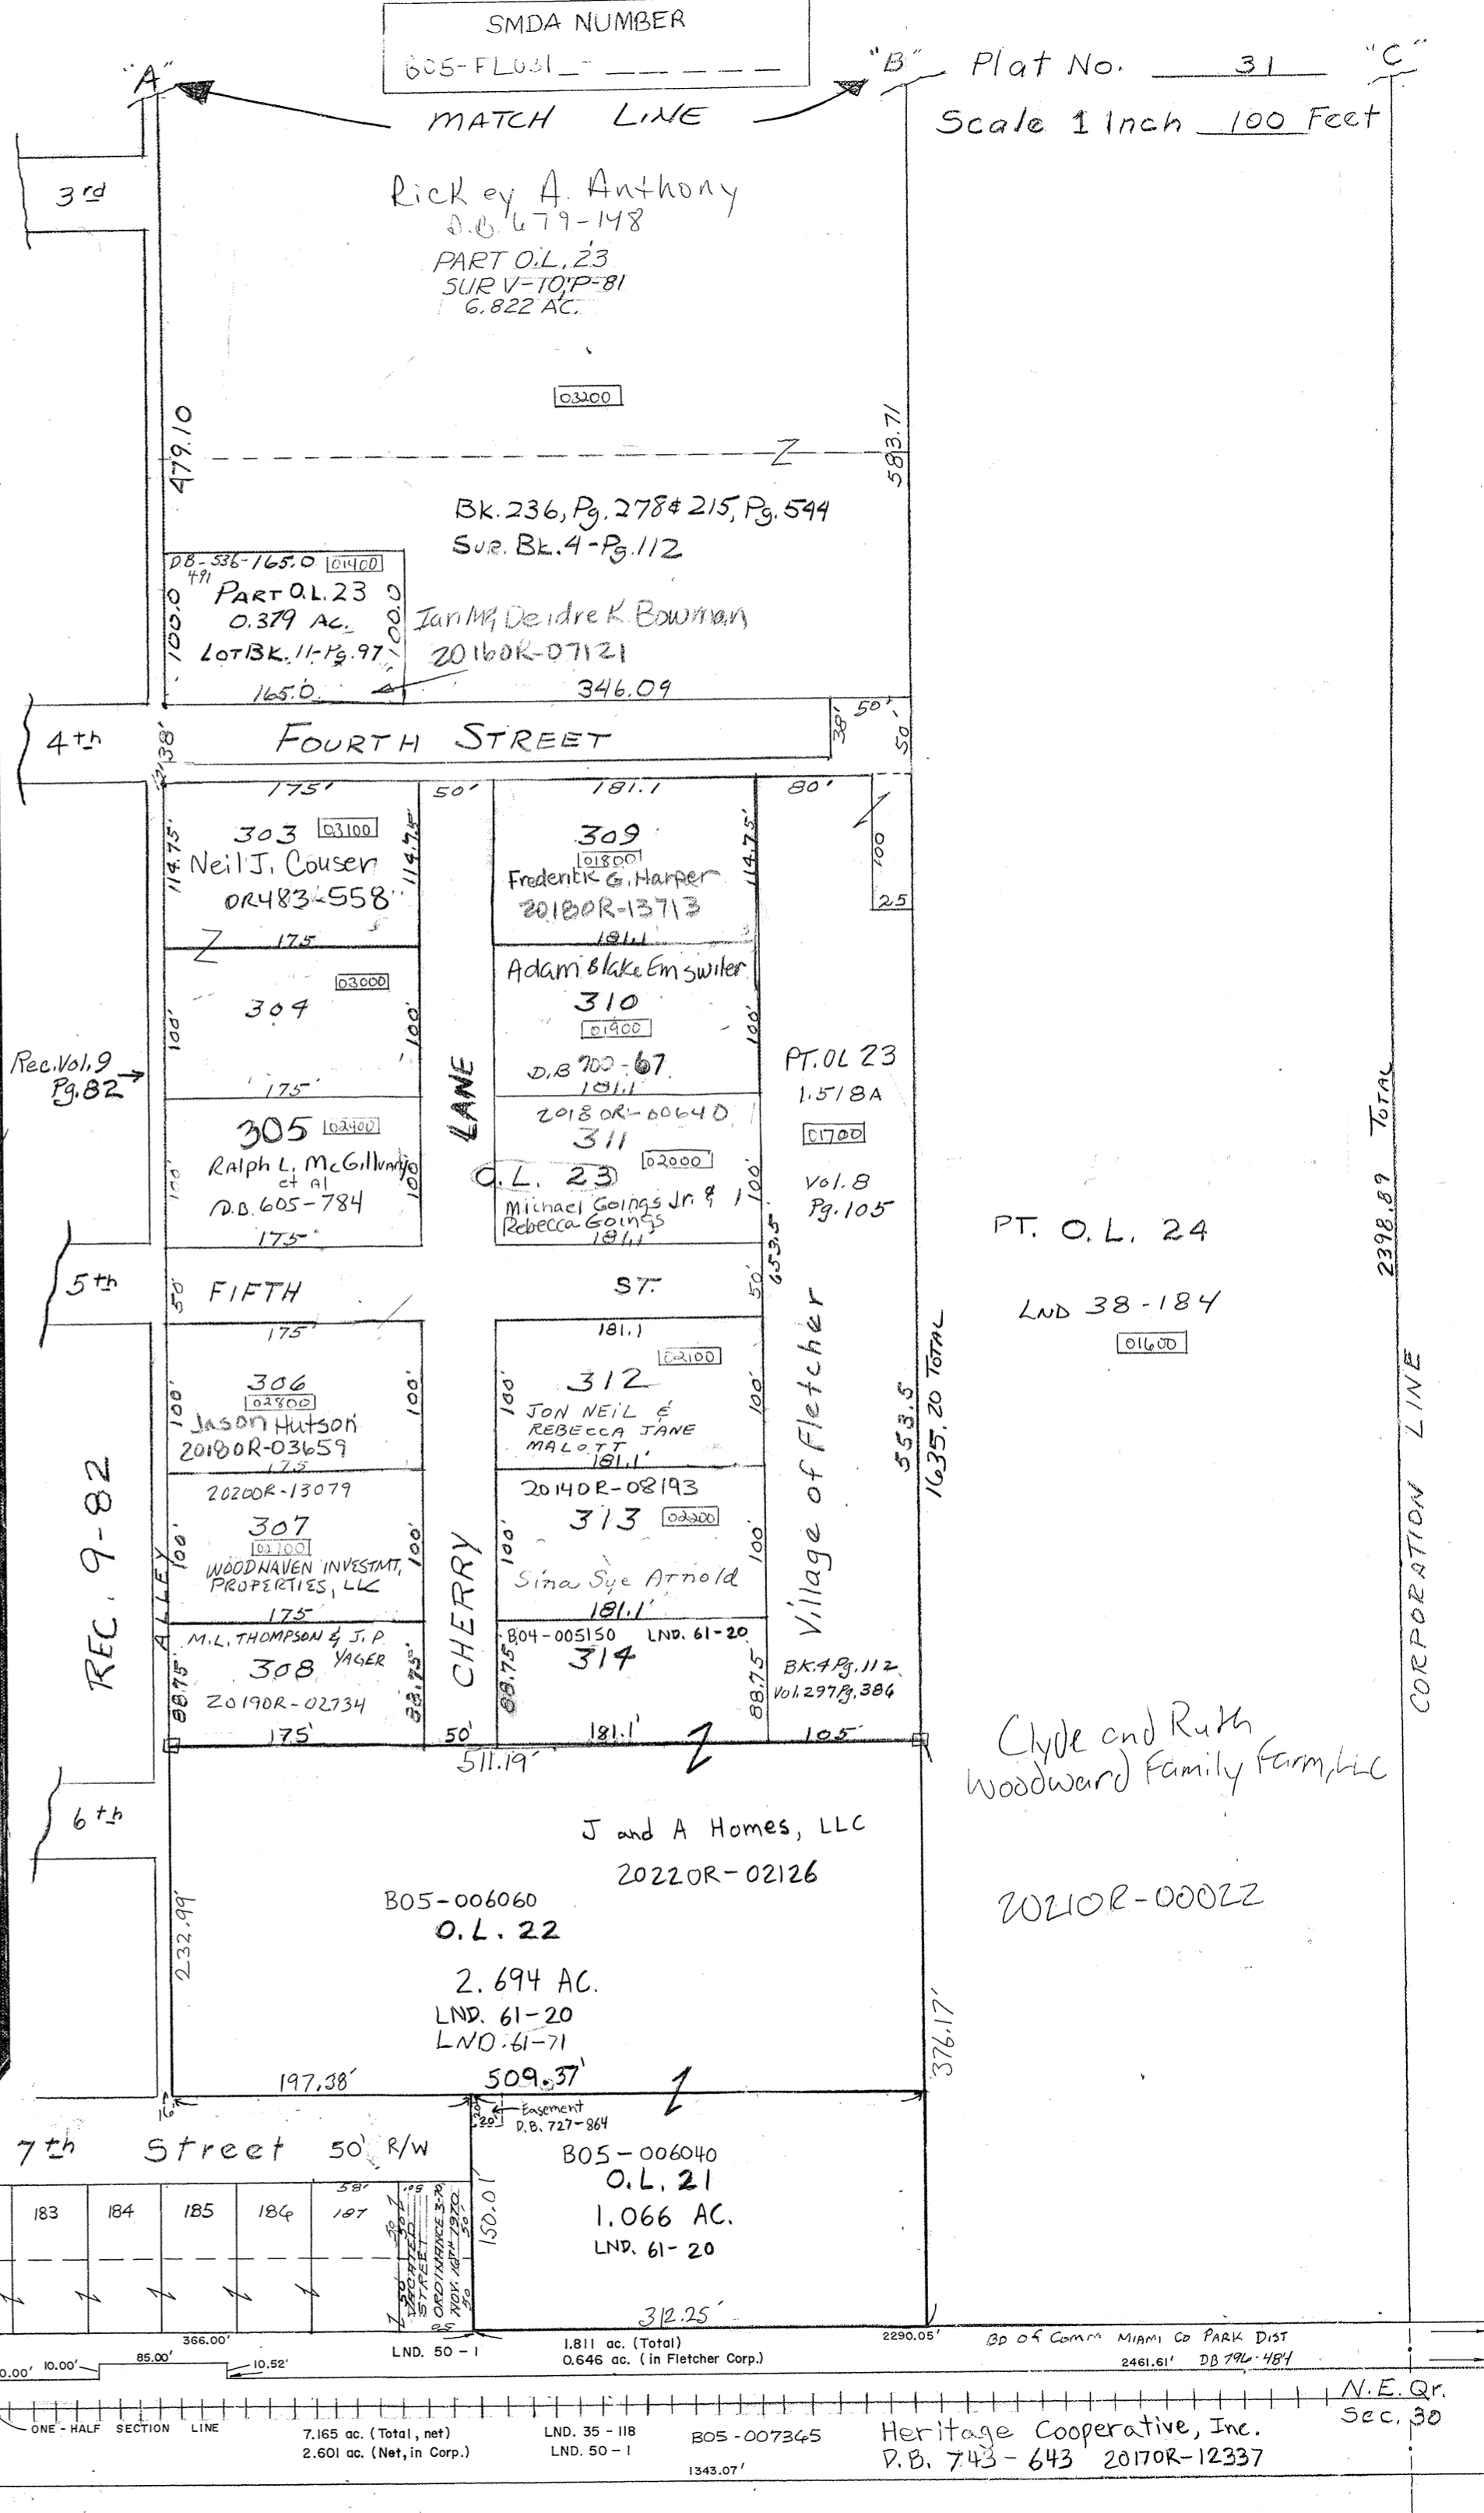 SMDA NUMBER
B05-FL031_-
"A"
"B"
Plat No. 31
"C"
MATCH LINE
Scale 1 Inch 100 Feet
3rd
Rickey A. Anthony
D.B. 679-148
PART O.L. 23
SUR V-10, P-81
6.822 AC.
03200
479.10
583.71
Bk. 236, Pg. 278 & 215, Pg. 544
Sur. Bk. 4-Pg. 112
DB-536-165.0 01400
491
PART O.L. 23
0.379 Ac.
LOT BK. 11-Pg. 97
100.0
100.0
165.0
Ian M & Deidre K. Bowman
2016OR-07121
346.09
4th
38'
FOURTH STREET
38'
50'
50'
175'
50'
181.1
80'
303 03100
Neil J. Couser
OR483-558
114.75'
114.75'
175
309
01800
Frederick G. Harper
2018OR-13713
114.75'
181.1
100
25
03000
304
100'
100'
175'
Adam Blake Emswiler
310
01900
D.B 700-67
100'
181.1'
Rec. Vol. 9
Pg. 82
LANE
PT. OL 23
1.518A
01700
Vol. 8
Pg. 105
305 02900
Ralph L. McGillvary
et Al
D.B. 605-784
100'
100
175'
2018OR-00640
311
02000
O.L. 23
Michael Goings Jr. &
Rebecca Goings
100'
181.1'
653.5
2398.89 TOTAL
PT. O.L. 24
LND 38-184
01600
5th
50'
FIFTH ST.
50'
175'
181.1
306
02800
Jason Hutson
2018OR-03659
100'
100'
175
02100
312
JON NEIL &
REBECCA JANE
MALOTT
100'
100'
181.1'
Village of Fletcher
553.5
1635.20 TOTAL
CORPORATION LINE
REC. 9-82
ALLEY
2020OR-13079
307
02700
WOODHAVEN INVESTMT,
PROPERTIES, LLC
100'
100'
175
CHERRY
2014OR-08193
313 02200
Sina Sue Arnold
100'
100'
181.1'
M.L. THOMPSON & J.P.
YAGER
308
2019OR-02734
88.75'
88.75'
175'
50'
B04-005150 LND. 61-20
314
88.75'
88.75
181.1'
BK. 4 Pg. 112
Vol. 297 Pg. 386
105
511.19'
Clyde and Ruth
Woodward Family Farm, LLC
2021OR-00022
6th
J and A Homes, LLC
2022OR-02126
B05-006060
O.L. 22
2.694 AC.
LND. 61-20
LND. 61-71
232.99'
376.17'
197.38'
509.37'
16'
20'
Easement
D.B. 727-864
7th Street 50' R/W
B05-006040
O.L. 21
1.066 AC.
LND. 61-20
150.01'
312.25'
183
184
185
186
58'
187
VACATED
STREET
ORDINANCE 3-70
NOV. 16TH 1970
366.00'
LND. 50-1
1.811 ac. (Total)
0.646 ac. (in Fletcher Corp.)
2290.05'
BD of Comm MIAMI CO PARK DIST
2461.61' DB 796-484
0.00' 10.00'
85.00'
10.52'
N.E. Qr.
Sec. 30
ONE-HALF SECTION LINE
7.165 ac. (Total, net)
2.601 ac. (Net, in Corp.)
LND. 35-118
LND. 50-1
B05-007345
Heritage Cooperative, Inc.
D.B. 743-643 2017OR-12337
1343.07'